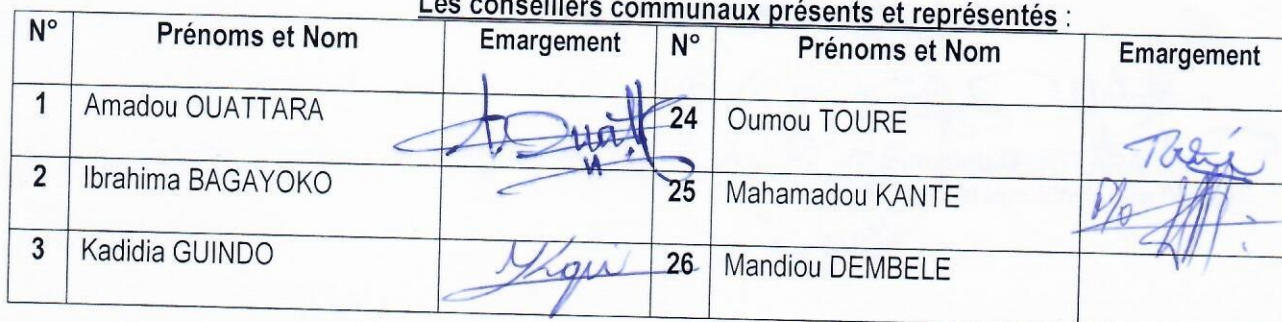 Les conseillers communaux présents et représentés :
N° Prénoms et Nom Emargement N° Prénoms et Nom Emargement
1 Amadou OUATTARA 24 Oumou TOURE
2 Ibrahima BAGAYOKO 25 Mahamadou KANTE P/o
3 Kadidia GUINDO 26 Mandiou DEMBELE